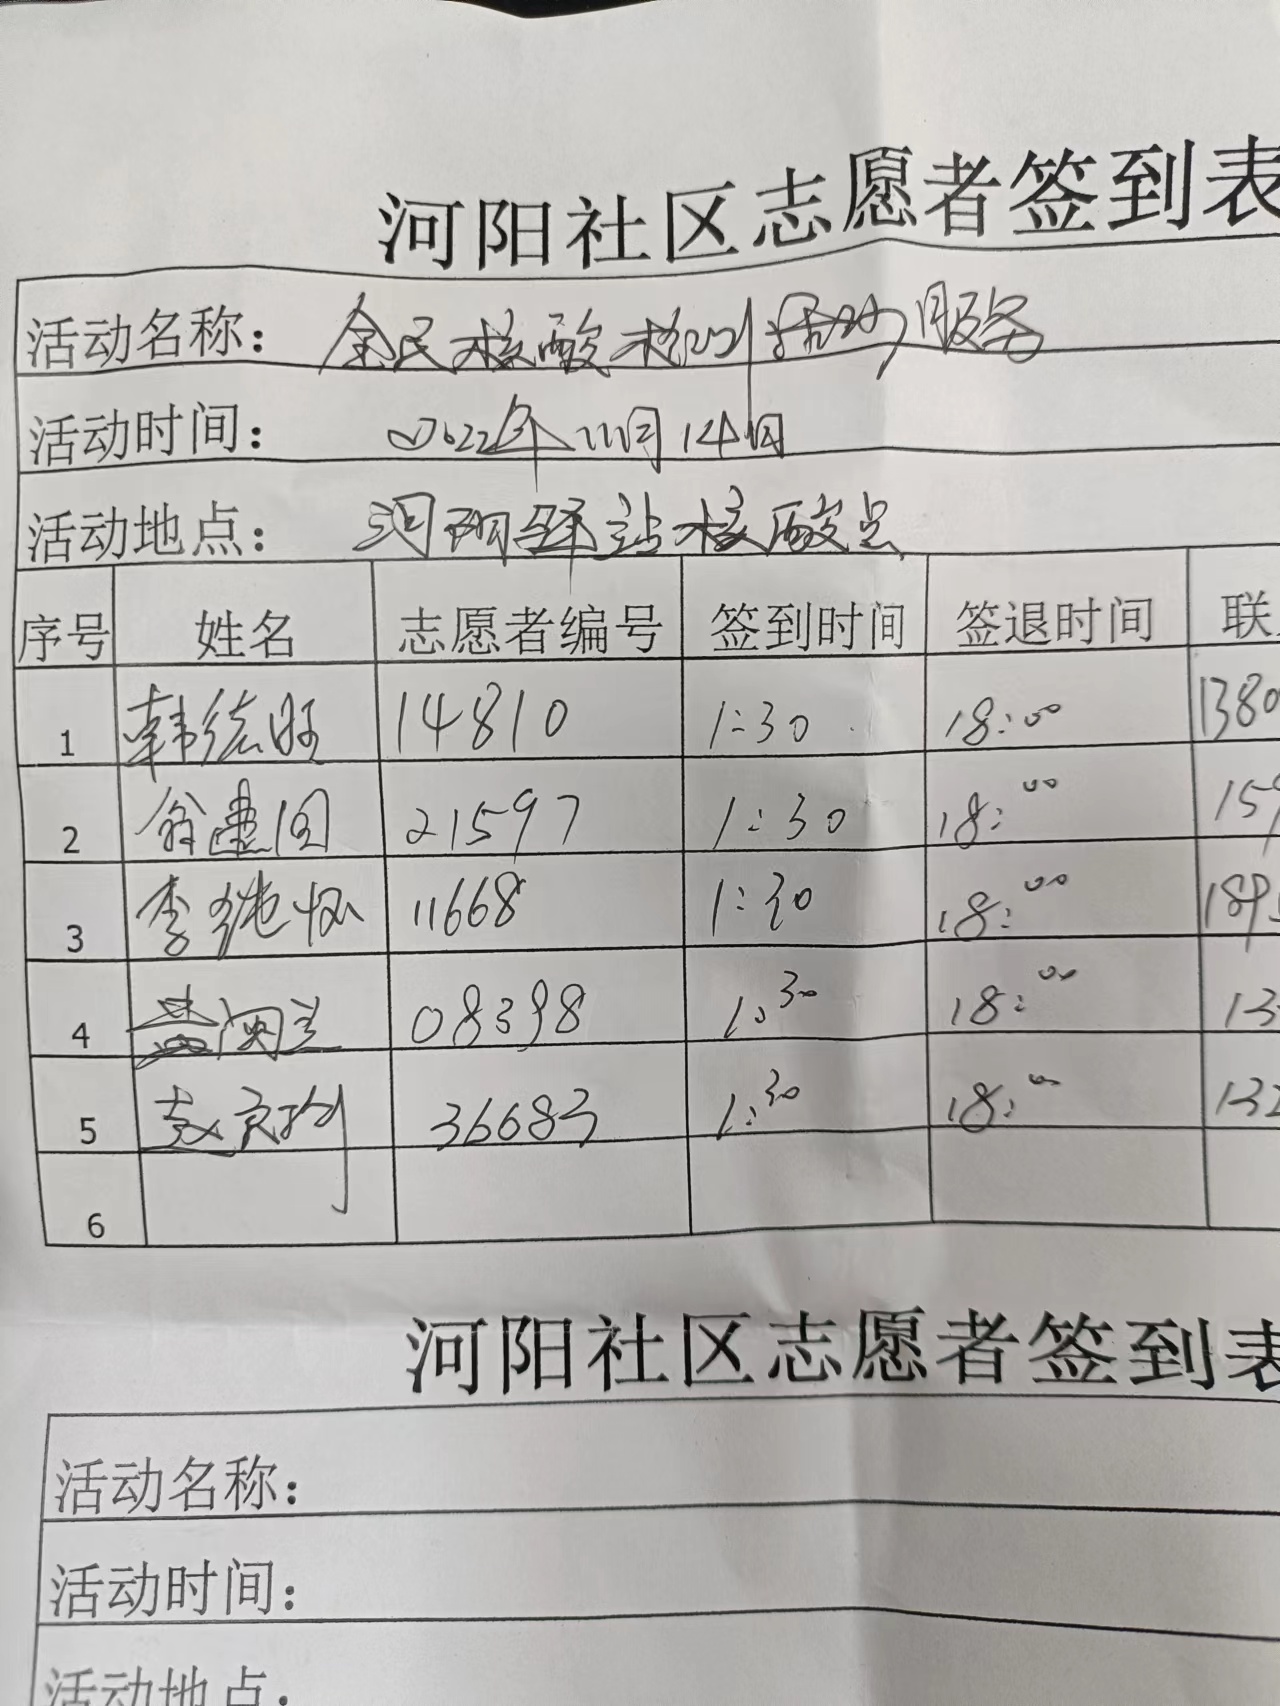 河阳社区志愿者签到表
活动名称： 全民核酸检测活动服务
活动时间： 2022年11月14日
活动地点： 河阳驿站核酸点
序号 姓名 志愿者编号 签到时间 签退时间 联
1 韩德旺 14810 1:30 18:00 1380
2 翁建国 21597 1:30 18:00 159
3 李继怀 11668 1:30 18:00 189
4 黄闽兰 08398 1:30 18:00 13
5 36683 1:30 18:00 132
6
河阳社区志愿者签到表
活动名称：
活动时间：
活动地点：